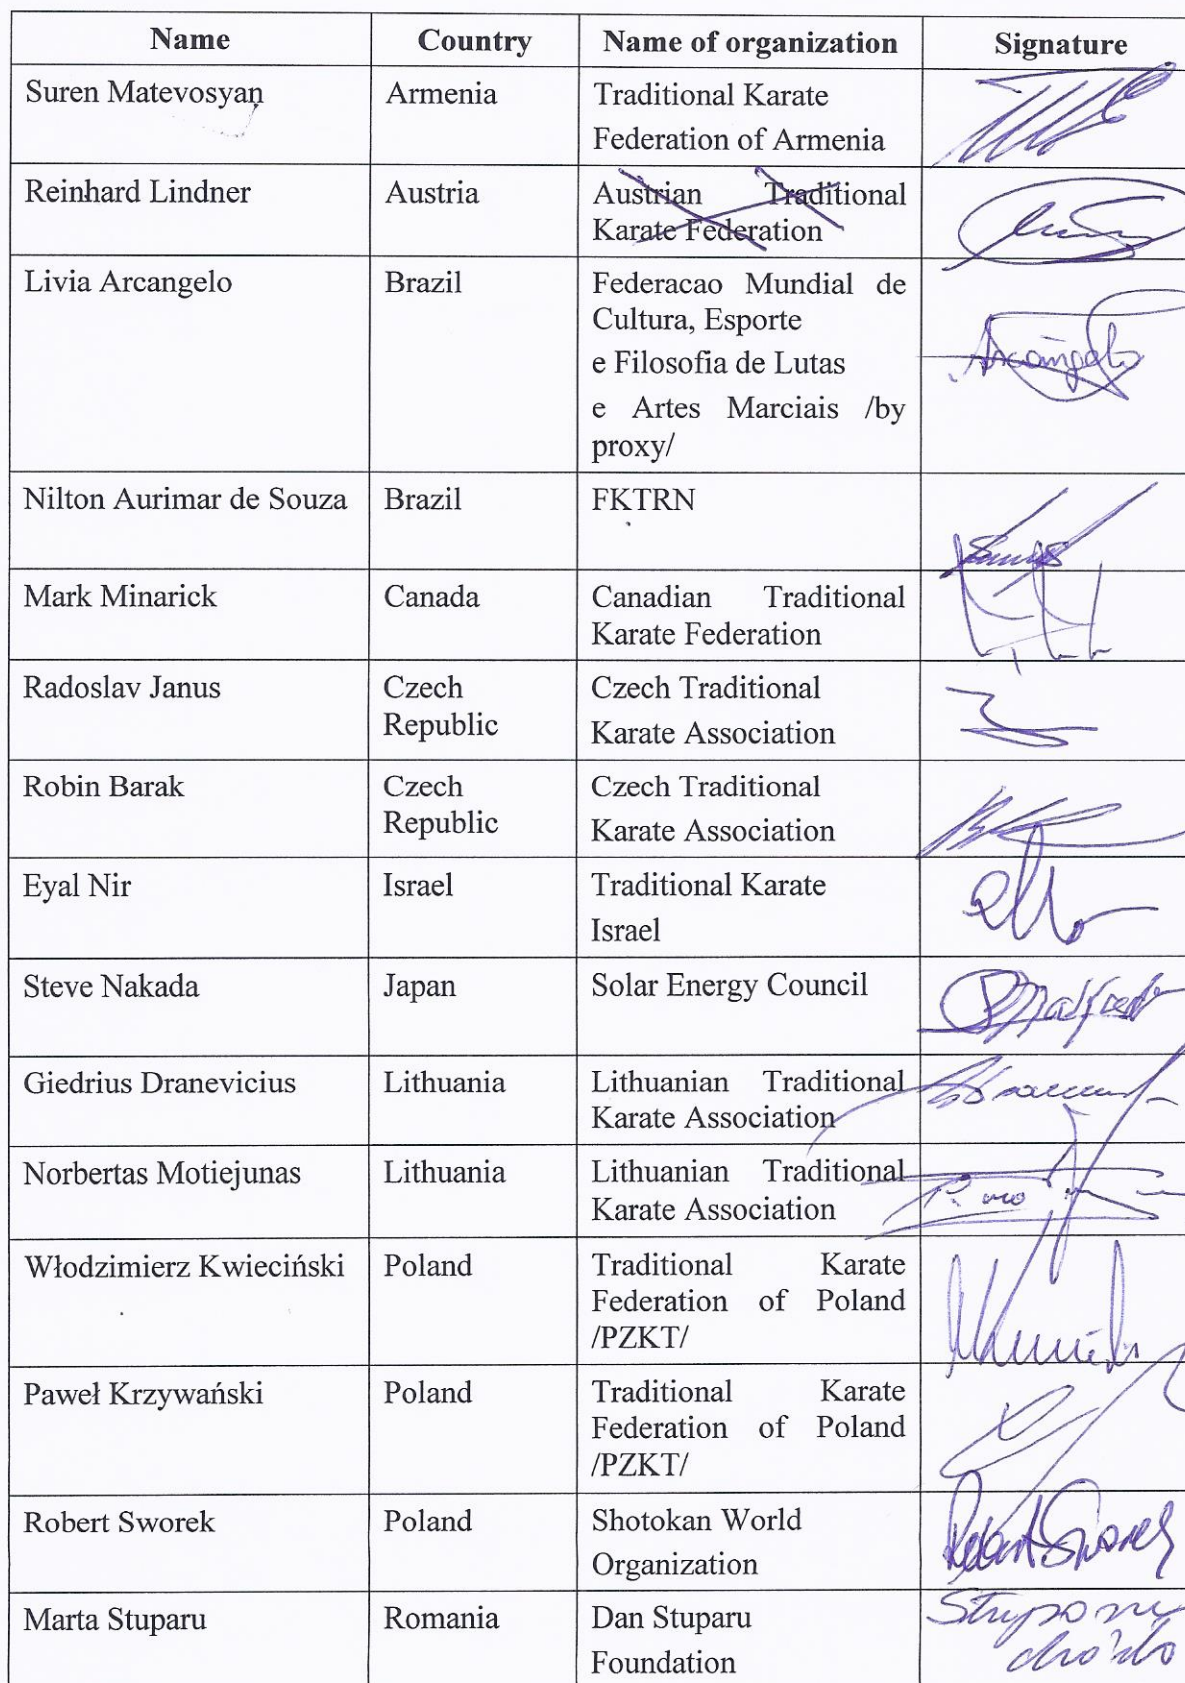 Name Country Name of organization Signature
Suren Matevosyan Armenia Traditional Karate
Federation of Armenia
Reinhard Lindner Austria Austrian Traditional
Karate Federation
Livia Arcangelo Brazil Federacao Mundial de
Cultura, Esporte
e Filosofia de Lutas
e Artes Marciais /by
proxy/
Arcangelo
Nilton Aurimar de Souza Brazil FKTRN
Mark Minarick Canada Canadian Traditional
Karate Federation
Radoslav Janus Czech Czech Traditional
Republic Karate Association
Robin Barak Czech Czech Traditional
Republic Karate Association
Eyal Nir Israel Traditional Karate
Israel
Steve Nakada Japan Solar Energy Council
Giedrius Dranevicius Lithuania Lithuanian Traditional
Karate Association
Norbertas Motiejunas Lithuania Lithuanian Traditional
Karate Association
Włodzimierz Kwieciński Poland Traditional Karate
Federation of Poland
/PZKT/
Paweł Krzywański Poland Traditional Karate
Federation of Poland
/PZKT/
Robert Sworek Poland Shotokan World
Organization
Robert Sworek
Marta Stuparu Romania Dan Stuparu
Foundation